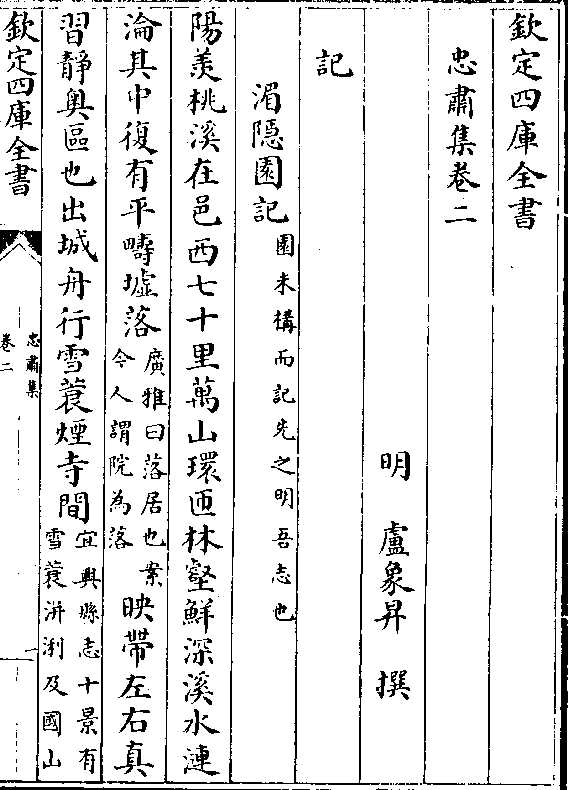 欽定四庫全書
忠肅集卷二
明 盧象昇 撰
記
湄隠園記園未構而記先之明吾志也
陽羨桃溪在邑西七十里萬山環匝林壑鮮深溪水漣
淪其中復有平疇墟落廣雅曰落居也案今人謂院為落映帶左右真
習靜奥區也出城舟行雪蓑煙寺間宜興縣志十景有雪蓑洴浰及國山
欽定四庫全書
忠肅集
卷二
一